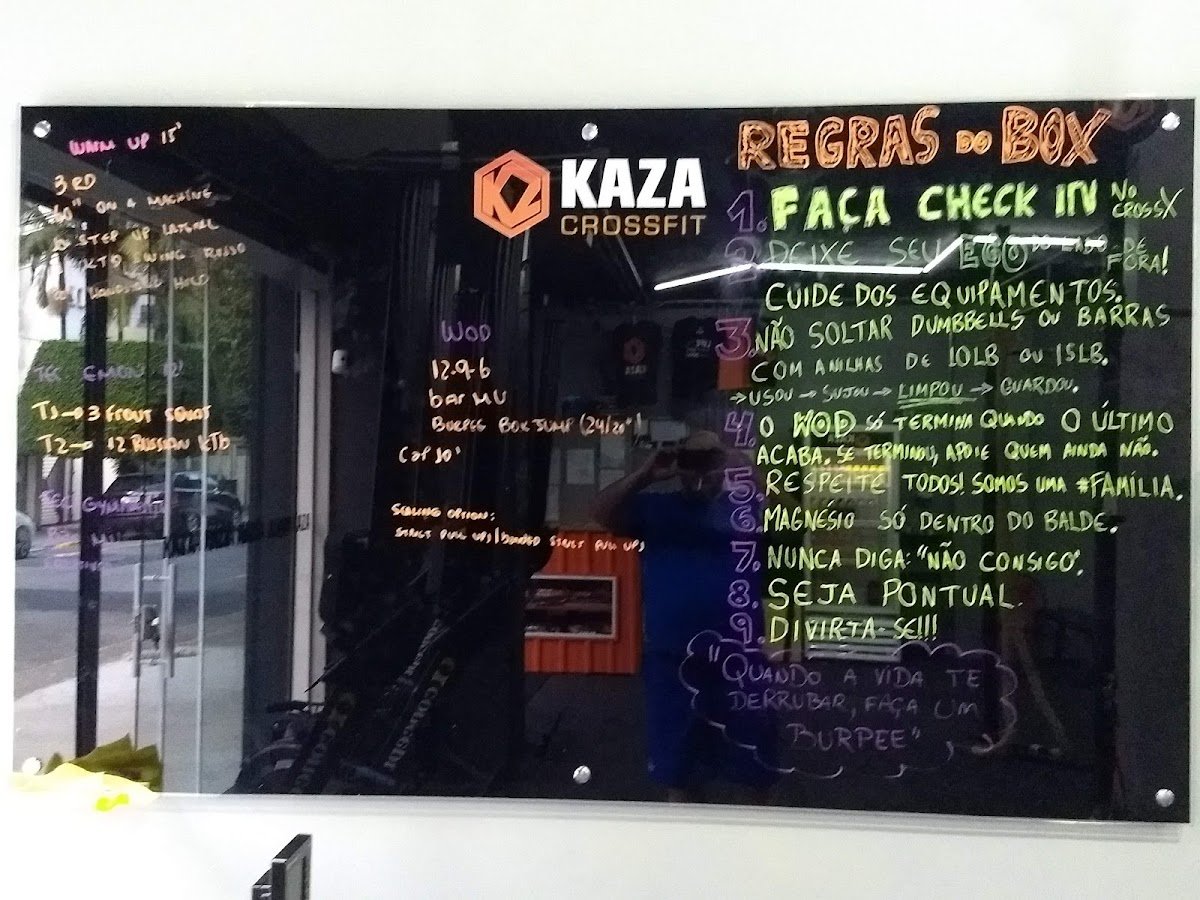 WARM UP 15'
3RD
60" ON A MACHINE
10 STEP UP LATERAL
KTB SWING RUSSO
HOLD
T1 → 3 FRONT SQUAT
T2 → 12 RUSSIAN KTB
KAZA
CROSSFIT
WOD
12-9-6
bar MU
BURPEE BOX JUMP (24/20")
CAP 10'
SCALING OPTION:
STRICT PULL UPS / BANDED STRICT PULL UPS
REGRAS DO BOX
1. FAÇA CHECK IN NO CROSSX
2. DEIXE SEU EGO DO LADO DE FORA!
CUIDE DOS EQUIPAMENTOS.
3. NÃO SOLTAR DUMBBELLS OU BARRAS
COM ANILHAS DE 10LB OU 15LB.
→ USOU → SUJOU → LIMPOU → GUARDOU.
4. O WOD SÓ TERMINA QUANDO O ÚLTIMO
ACABA. SE TERMINOU, APOIE QUEM AINDA NÃO.
5. RESPEITE TODOS! SOMOS UMA #FAMÍLIA.
6. MAGNÉSIO SÓ DENTRO DO BALDE.
7. NUNCA DIGA: "NÃO CONSIGO".
8. SEJA PONTUAL.
9. DIVIRTA-SE!!!
"QUANDO A VIDA TE
DERRUBAR, FAÇA UM
BURPEE"